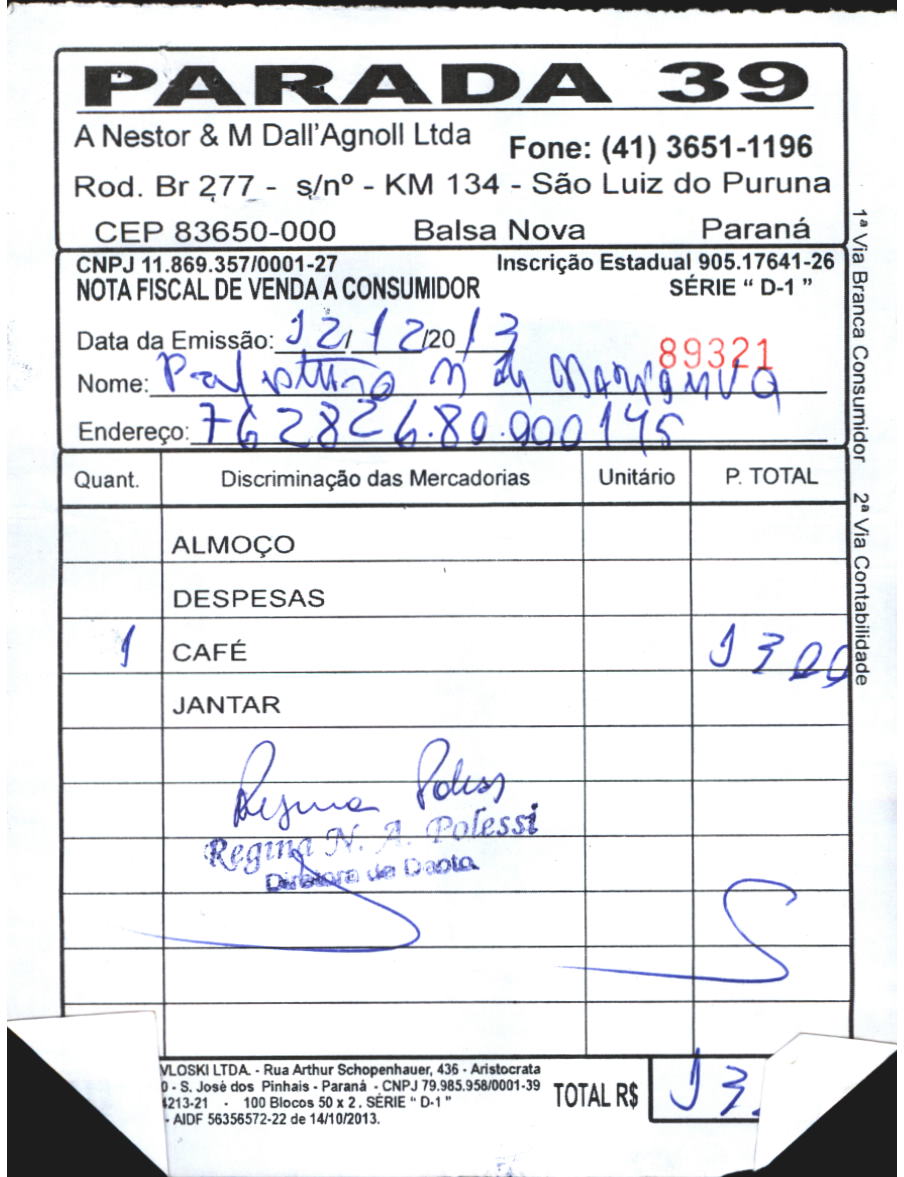 PARADA 39
A Nestor & M Dall'Agnoll Ltda Fone: (41) 3651-1196
Rod. Br 277 - s/nº - KM 134 - São Luiz do Puruna
CEP 83650-000 Balsa Nova Paraná
CNPJ 11.869.357/0001-27 Inscrição Estadual 905.17641-26
NOTA FISCAL DE VENDA A CONSUMIDOR SÉRIE “ D-1 ”
Data da Emissão: 12/12/2013
89321
Nome:
Endereço: 76282680.000145
Quant. Discriminação das Mercadorias Unitário P. TOTAL
ALMOÇO
DESPESAS
1 CAFÉ 13 00
JANTAR
Regina Polessi
Regina N. A. Polessi
Diretora de Depto.
VLOSKI LTDA. - Rua Arthur Schopenhauer, 436 - Aristocrata
0 - S. José dos Pinhais - Paraná - CNPJ 79.985.958/0001-39
4213-21 - 100 Blocos 50 x 2. SÉRIE “ D-1 ”
- AIDF 56356572-22 de 14/10/2013.
TOTAL R$ 13,
1ª Via Branca Consumidor 2ª Via Contabilidade